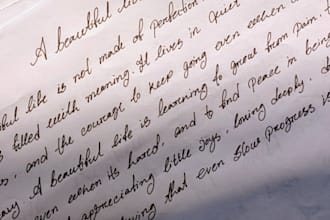 A beautiful
life is not made of perfection
is filled with meaning. It lives in quiet
, and the courage to keep going even when
. A beautiful life is learning to grow from pain.
even when its hard, and to find peace in being
appreciating little joys, loving deeply,
that even slow progress is